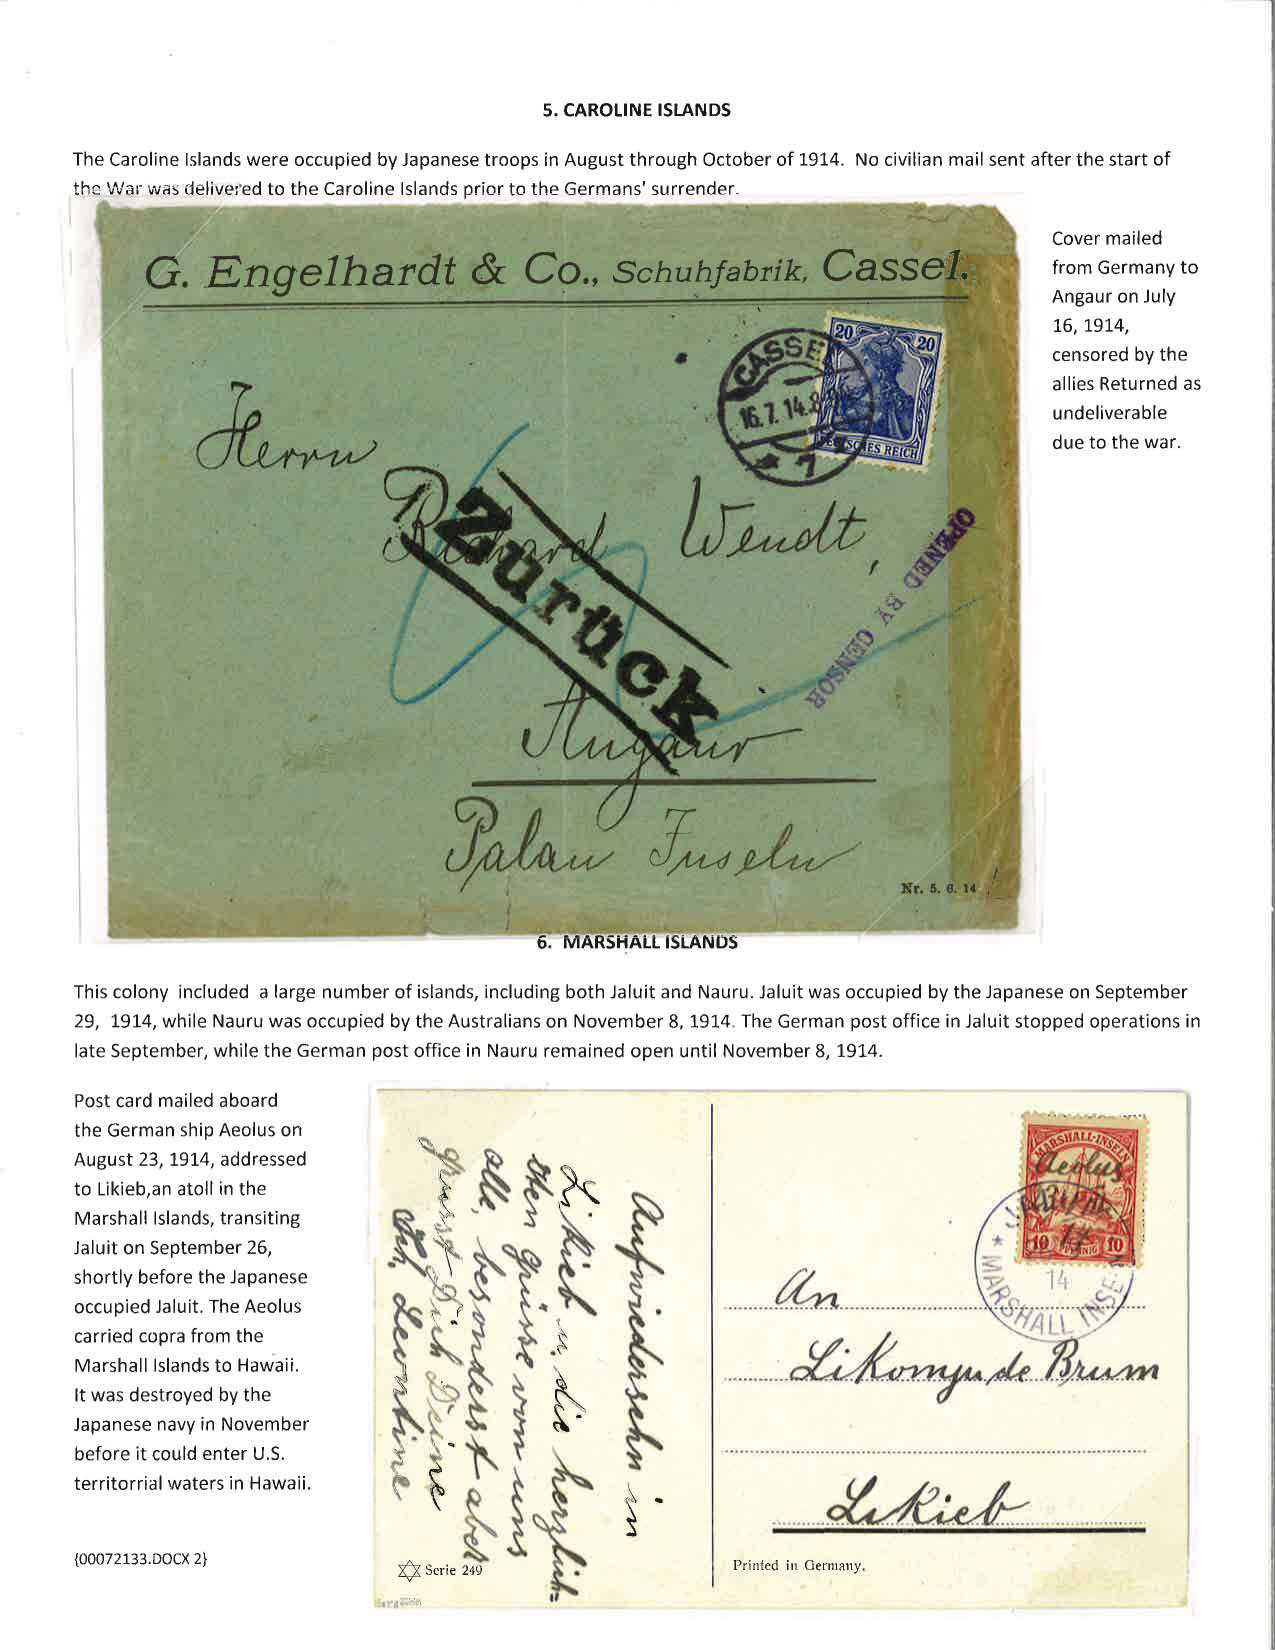 5. CAROLINE ISLANDS
The Caroline Islands were occupied by Japanese troops in August through October of 1914. No civilian mail sent after the start of
the War was delivered to the Caroline Islands prior to the Germans' surrender.
G. Engelhardt & Co., Schuhfabrik, Cassel.
CASSEL
16.7.14.8-9N.
* 7
20 20
DEUTSCHES REICH
Herrn
Richard Wendt,
Zurück
OPENED BY CENSOR
Angaur
Palau Inseln
Nr. 5. 6. 14
Cover mailed
from Germany to
Angaur on July
16, 1914,
censored by the
allies Returned as
undeliverable
due to the war.
6. MARSHALL ISLANDS
This colony included a large number of islands, including both Jaluit and Nauru. Jaluit was occupied by the Japanese on September
29, 1914, while Nauru was occupied by the Australians on November 8, 1914. The German post office in Jaluit stopped operations in
late September, while the German post office in Nauru remained open until November 8, 1914.
Post card mailed aboard
the German ship Aeolus on
August 23, 1914, addressed
to Likieb,an atoll in the
Marshall Islands, transiting
Jaluit on September 26,
shortly before the Japanese
occupied Jaluit. The Aeolus
carried copra from the
Marshall Islands to Hawaii.
It was destroyed by the
Japanese navy in November
before it could enter U.S.
territorrial waters in Hawaii.
{00072133.DOCX 2}
Aufwiedersehn in
Likieb u. die herzlich=
sten Grüsse von uns
alle, besonderst aber
grüsst Dich Deine
Leontine
Serie 249
MARSHALL-INSELN
Aeolus
10 PFENNIG 10
14
* MARSHALL INSELN
An
Likomju de Brum
Likieb
Printed in Germany.